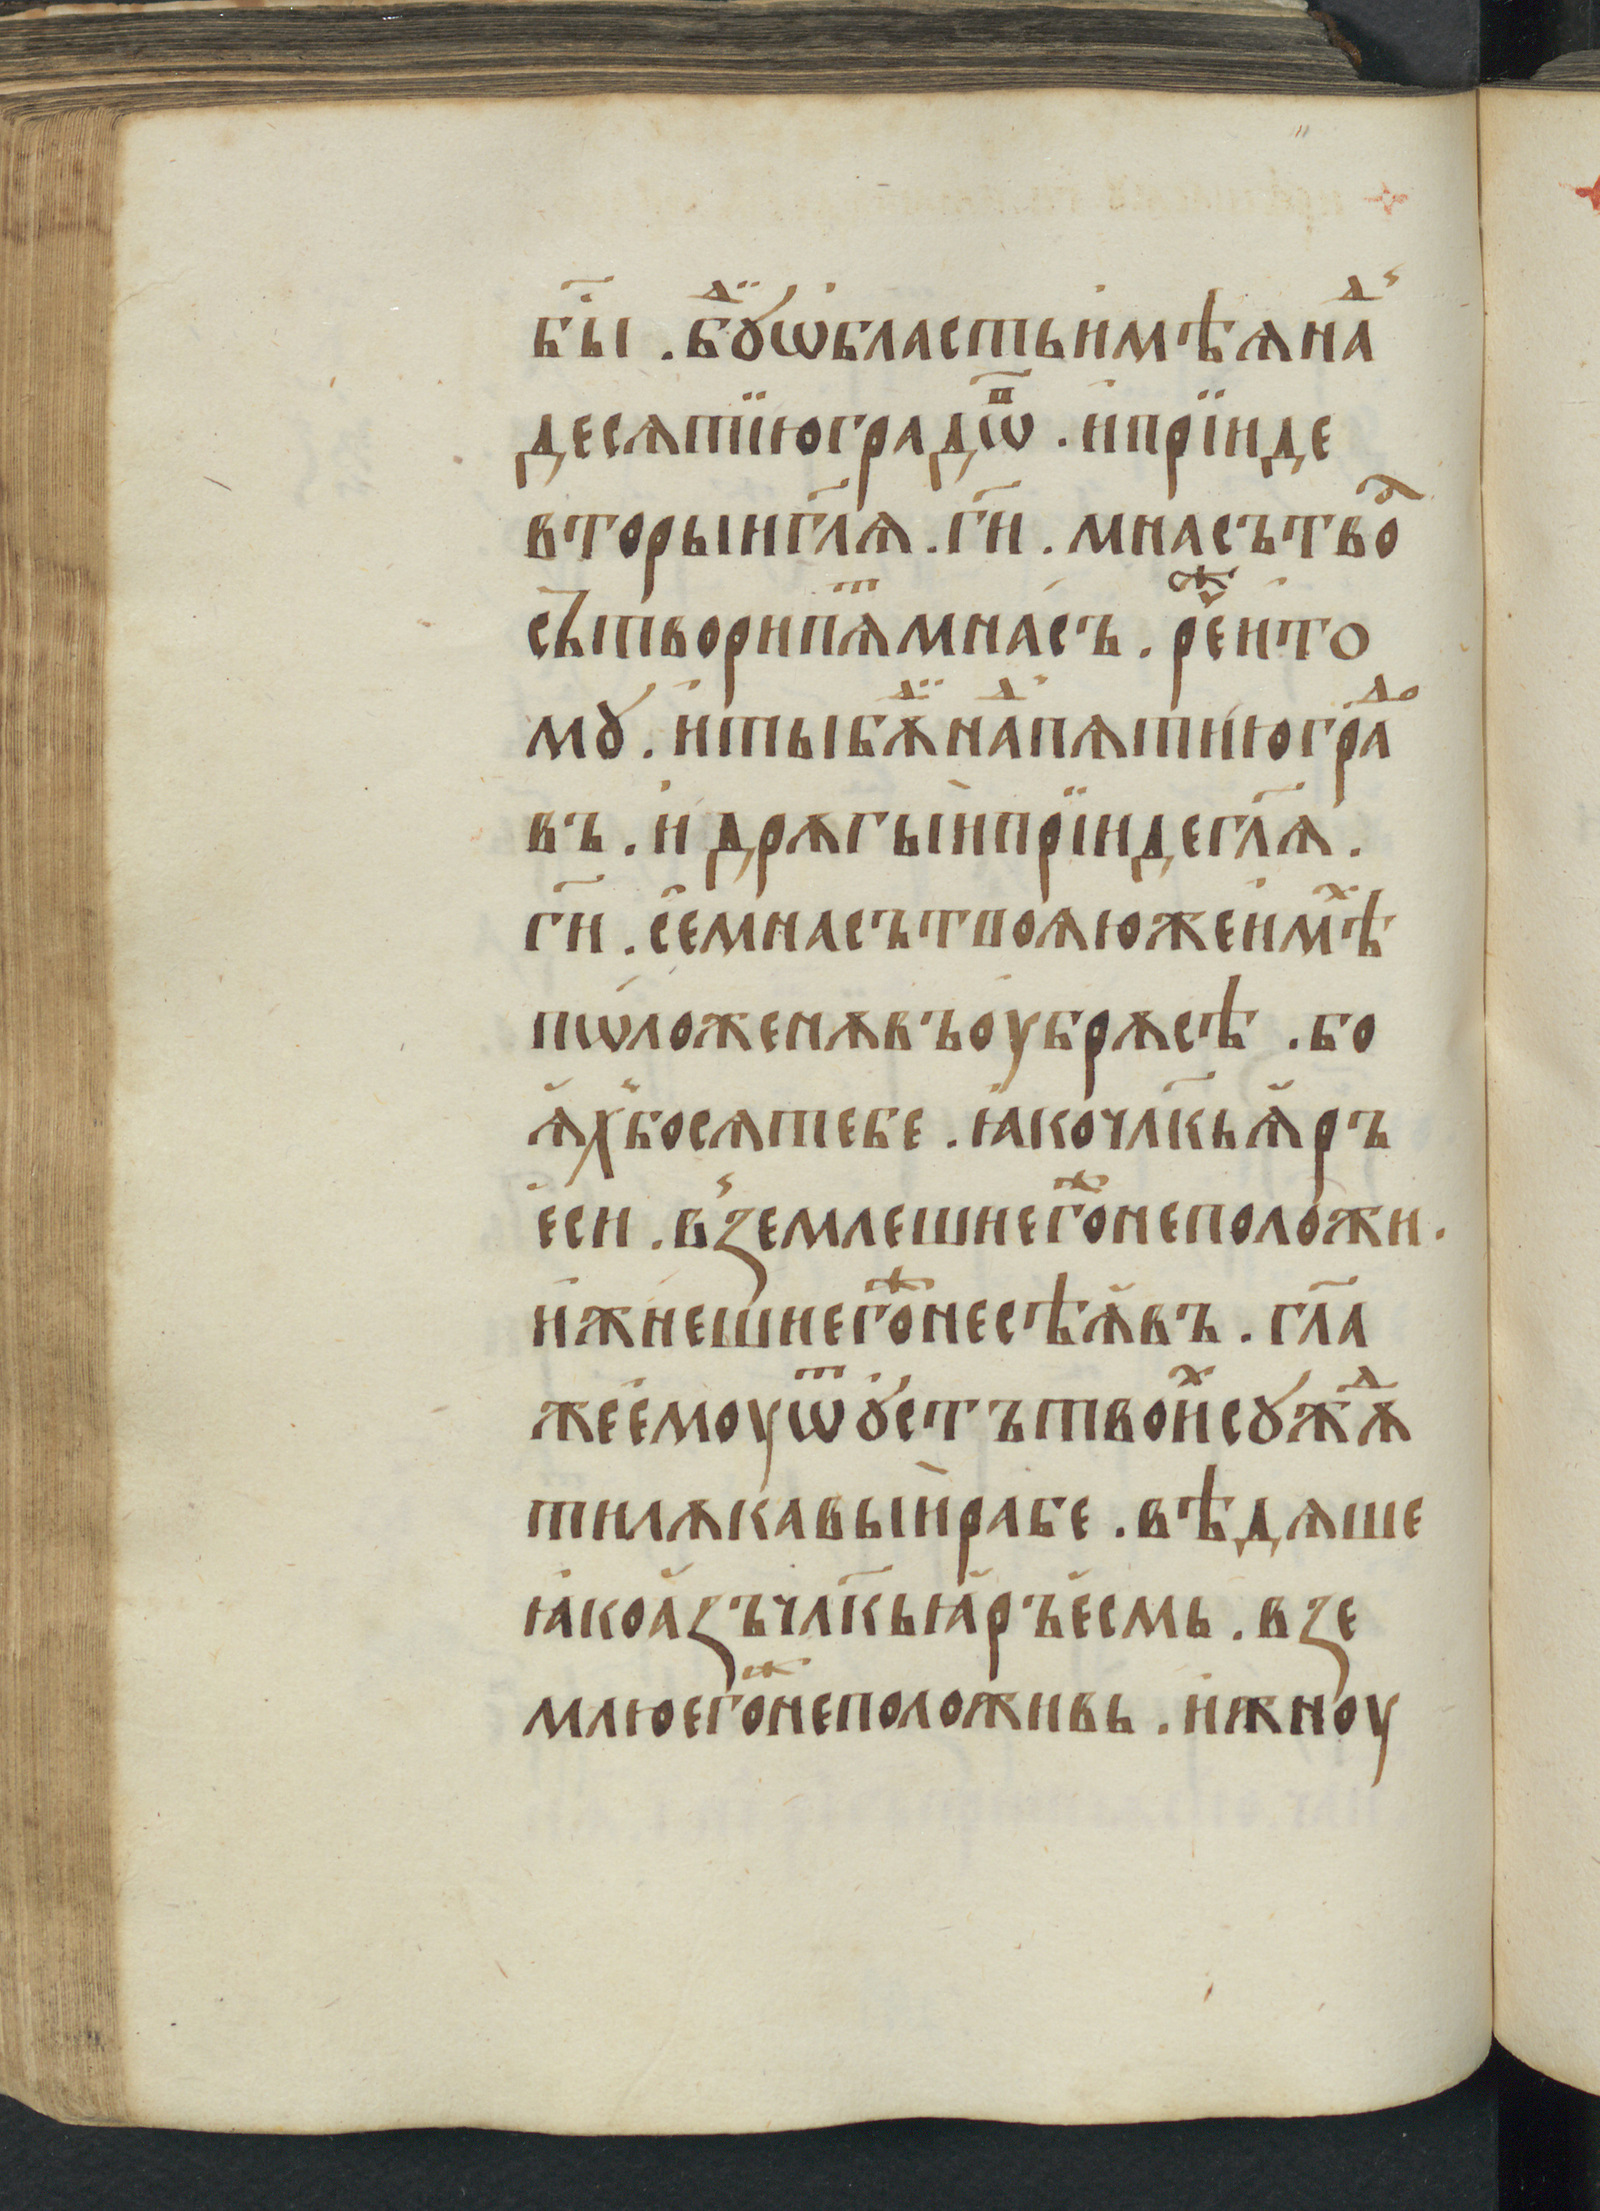 бы҃ . бꙋⷣ ѡбласть имѣѧ наⷣ
десѧтїю градѡⷨ . и прїиде
вторыи гл҃ѧ . ги҃ . мнасъ твоⷽ
сътвори пѧⷮ мнасъ . реⷤ и то
мꙋ . и ты бѫⷣ наⷣ пѧтию граⷣ
въ . и дрѫгыи прїиде гл҃ѧ .
ги҃ . се мнасъ твоѧ юже имѣⷯ
пѡложенѫ въ оубрѫсѣ . бо
ѧхбосѧ тебе . ꙗко чл҃кь ѧръ
еси . вземлеши егоⷤ не положи .
и жнеши егоⷤ не сѣѧвъ . гл҃а
же емоу ѿ ꙋстъ твоиⷯ сꙋжѫⷣ
ти лѫкавыи рабе . вѣдѧше
ꙗко азъ чл҃кь ꙗръ есмь . взе
млю егоⷤ не положивь . и жноу